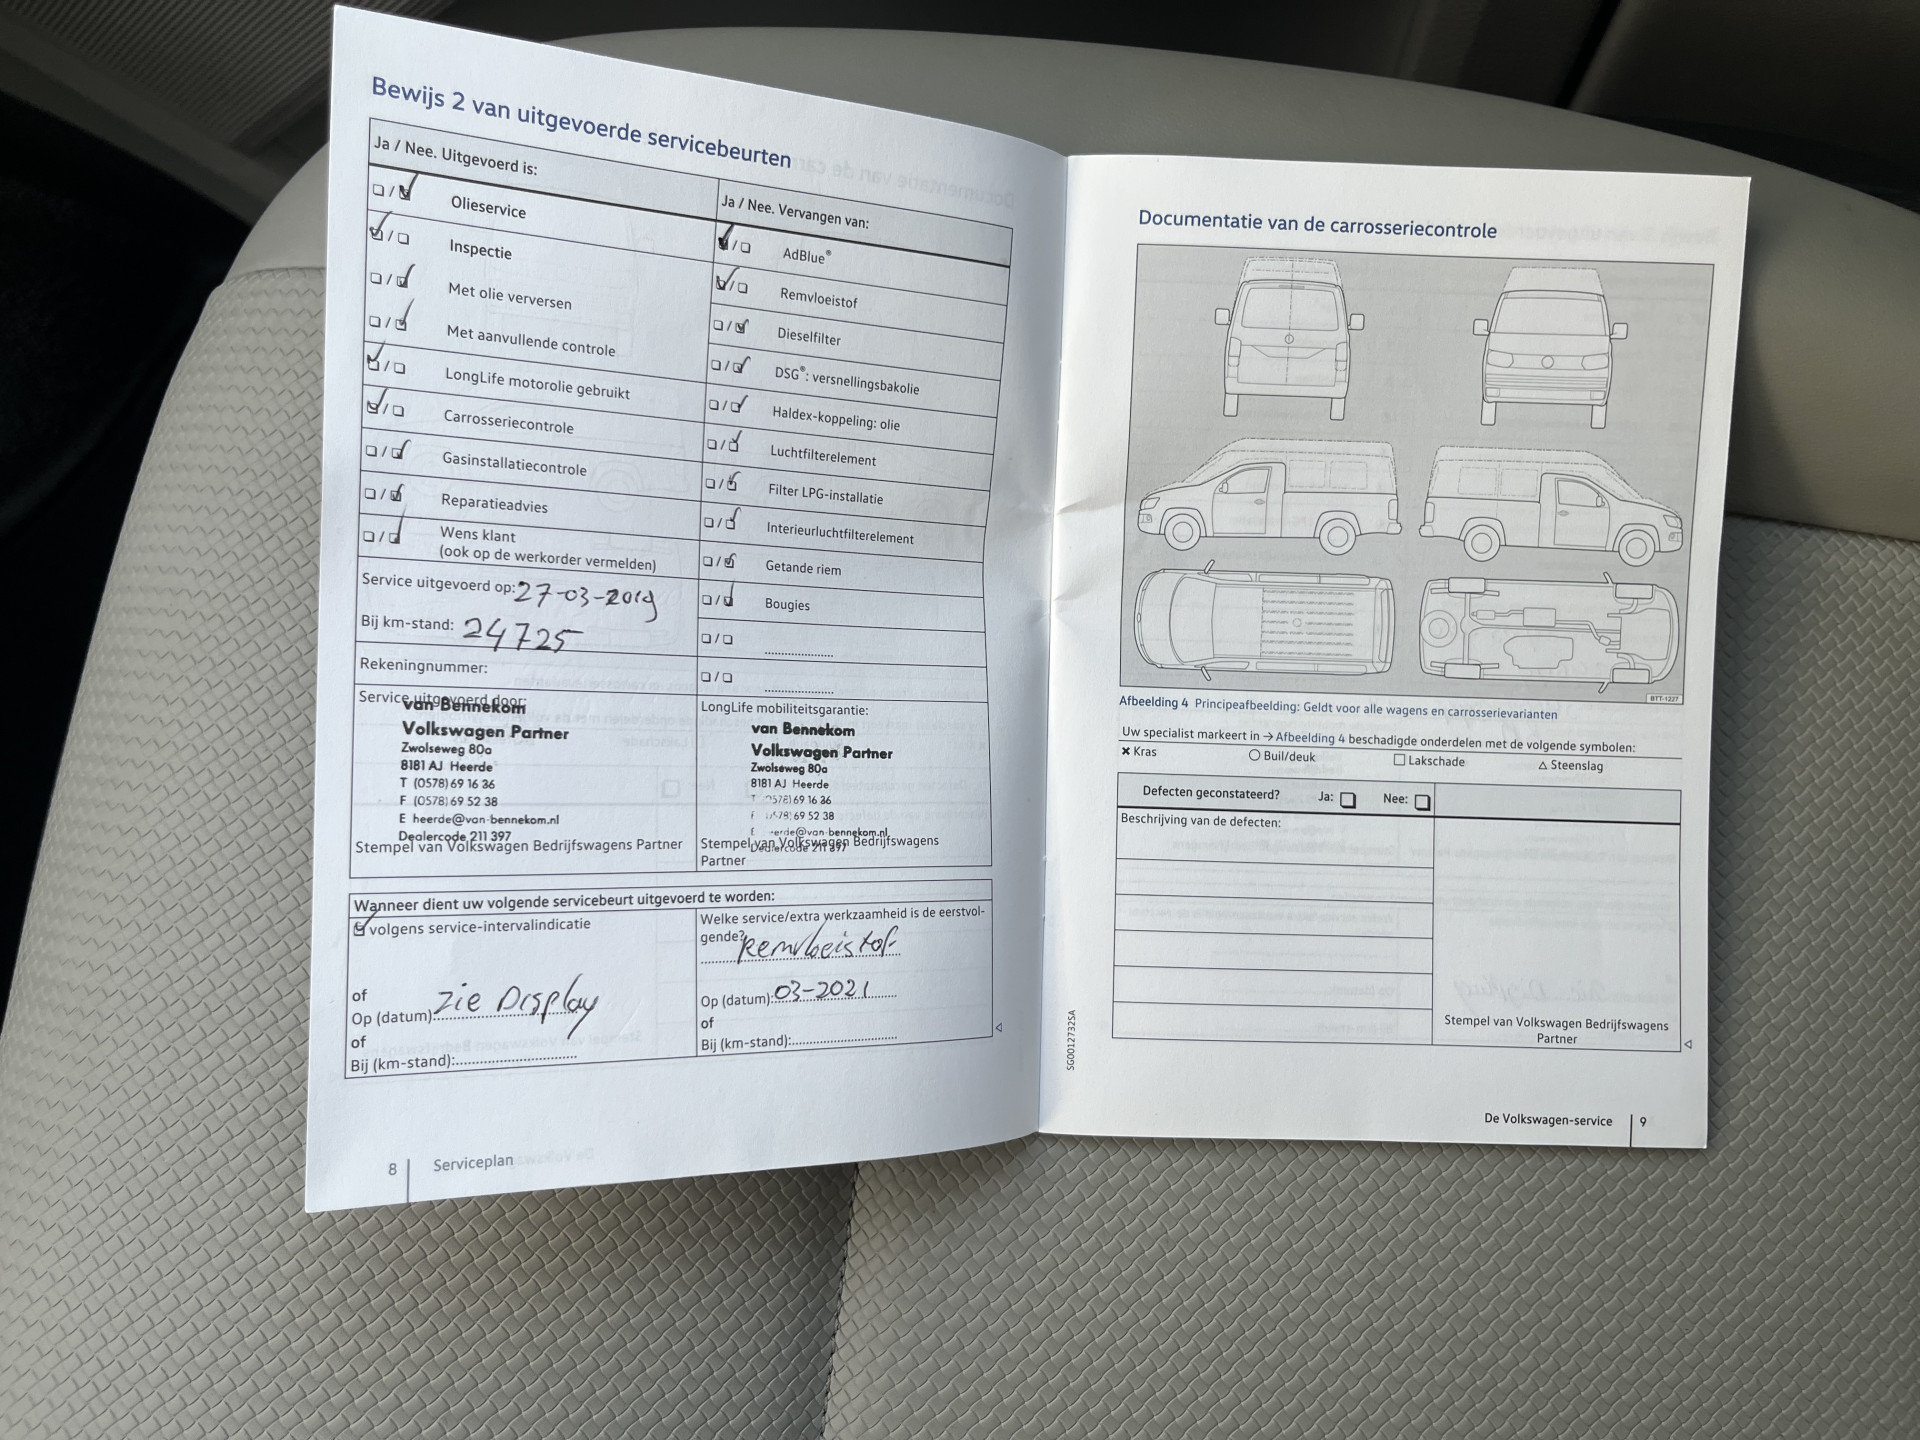 Bewijs 2 van uitgevoerde servicebeurten
Ja / Nee. Uitgevoerd is:
Olieservice
Inspectie
Met olie verversen
Met aanvullende controle
LongLife motorolie gebruikt
Carrosseriecontrole
Gasinstallatiecontrole
Reparatieadvies
Wens klant
(ook op de werkorder vermelden)
Service uitgevoerd op: 27-03-2019
Bij km-stand: 24725
Rekeningnummer:
Service uitgevoerd door:
van Bennekom
Volkswagen Partner
Zwolseweg 80a
8181 AJ Heerde
T (0578) 69 16 36
F (0578) 69 52 38
E heerde@van-bennekom.nl
Dealercode 211 397
Stempel van Volkswagen Bedrijfswagens Partner
Ja / Nee. Vervangen van:
AdBlue®
Remvloeistof
Dieselfilter
DSG®: versnellingsbakolie
Haldex-koppeling: olie
Luchtfilterelement
Filter LPG-installatie
Interieurluchtfilterelement
Getande riem
Bougies
LongLife mobiliteitsgarantie:
van Bennekom
Volkswagen Partner
Zwolseweg 80a
8181 AJ Heerde
T 0578) 69 16 36
F 0578) 69 52 38
E erde@van-bennekom.nl
Dealercode 211 397
Stempel van Volkswagen Bedrijfswagens
Partner
Wanneer dient uw volgende servicebeurt uitgevoerd te worden:
volgens service-intervalindicatie
of
Op (datum): Zie Display
of
Bij (km-stand):
Welke service/extra werkzaamheid is de eerstvol-
gende? Remvloeistof
Op (datum): 03-2021
of
Bij (km-stand):
8 Serviceplan
Documentatie van de carrosseriecontrole
BTT-1227
Afbeelding 4 Principeafbeelding: Geldt voor alle wagens en carrosserievarianten
Uw specialist markeert in → Afbeelding 4 beschadigde onderdelen met de volgende symbolen:
× Kras ○ Buil/deuk □ Lakschade △ Steenslag
Defecten geconstateerd? Ja: □ Nee: □
Beschrijving van de defecten:
Stempel van Volkswagen Bedrijfswagens
Partner
SG0012732SA
De Volkswagen-service 9